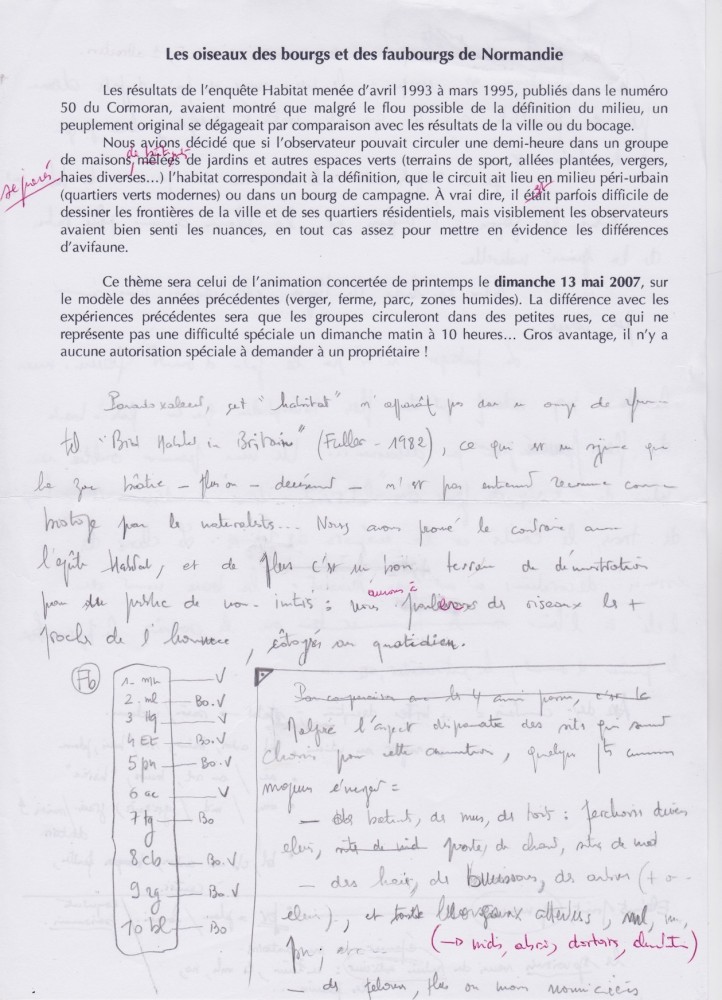 Les oiseaux des bourgs et des faubourgs de Normandie
Les résultats de l'enquête Habitat menée d'avril 1993 à mars 1995, publiés dans le numéro
50 du Cormoran, avaient montré que malgré le flou possible de la définition du milieu, un
peuplement original se dégageait par comparaison avec les résultats de la ville ou du bocage.
Nous avions décidé que si l'observateur pouvait circuler une demi-heure dans un groupe
de maisons, mêlées de jardins et autres espaces verts (terrains de sport, allées plantées, vergers,
haies diverses...) l'habitat correspondait à la définition, que le circuit ait lieu en milieu péri-urbain
(quartiers verts modernes) ou dans un bourg de campagne. À vrai dire, il était parfois difficile de
est
dessiner les frontières de la ville et de ses quartiers résidentiels, mais visiblement les observateurs
avaient bien senti les nuances, en tout cas assez pour mettre en évidence les différences
d'avifaune.
Ce thème sera celui de l'animation concertée de printemps le dimanche 13 mai 2007, sur
le modèle des années précédentes (verger, ferme, parc, zones humides). La différence avec les
expériences précédentes sera que les groupes circuleront dans des petites rues, ce qui ne
représente pas une difficulté spéciale un dimanche matin à 10 heures... Gros avantage, il n'y a
aucune autorisation spéciale à demander à un propriétaire !
Paradoxalement, cet "habitat" n'apparaît pas dans un ouvrage de
tel "Bird Habitats in Britain" (Fuller - 1982), ce qui est un signe que
la zone bâtie - plus ou - - n'est pas reconnue comme
biotope par les naturalistes... Nous avons prouvé le contraire avec
l'enquête Habitat, et de plus c'est un bon terrain de démonstration
pour du public de non-initiés : nous parlerons des oiseaux les +
aurons à
proches de l'homme, côtoyés au quotidien.
Fb
1. mn V
2. ml Bo.V
3 Hg V
4 Et Bo.V
5 pn Bo.V
6 ac V
7 tg Bo
8 cb Bo.V
9 rg Bo.V
10 bl Bo
Par comparaison avec les 4 c'est le
Malgré l'aspect disparate des sites qui seront
choisis pour cette animation, quelques pts communs
majeurs émergent =
- des bâtiments, des murs, des toits : perchoirs divers
élevés, sites de nid postes de chant, sites de nid
- des haies, des buissons, des arbres (+ ou -
élevés), et
(→ nids, abris, dortoirs,
- des pelouses, plus ou moins